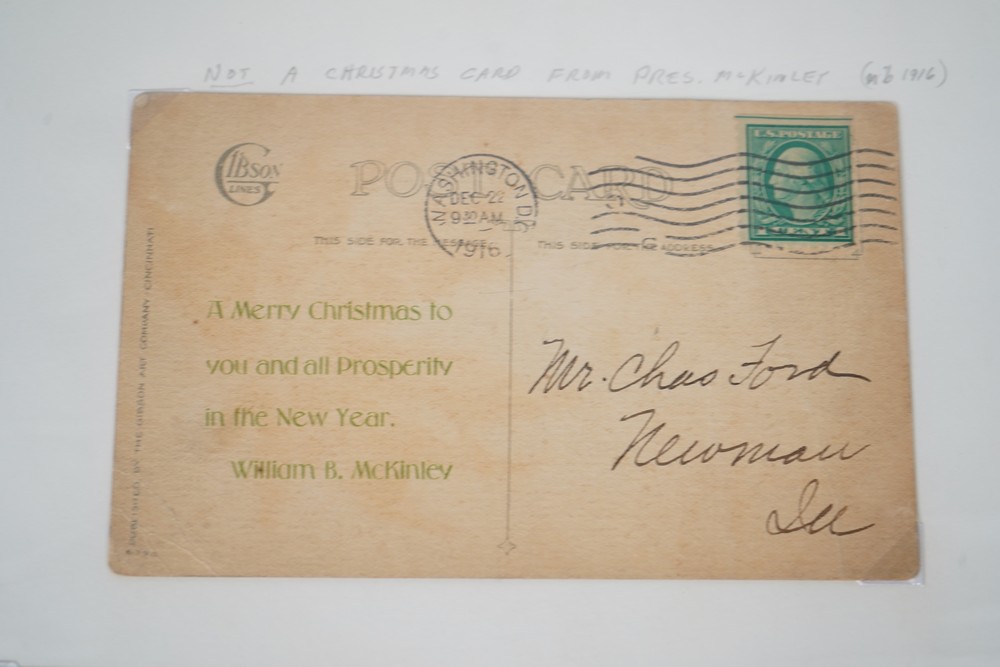 NOT A CHRISTMAS CARD FROM PRES. McKINLEY (1916)
GIBSON
LINES
POST CARD
WASHINGTON D.C.
DEC 22
9 30 AM
1916
U.S. POSTAGE
THIS SIDE FOR THE MESSAGE
THIS SIDE FOR THE ADDRESS
A Merry Christmas to
you and all Prosperity
in the New Year.
William B. McKinley
Mr. Chas Ford
Newman
Ill
PUBLISHED BY THE GIBSON ART COMPANY, CINCINNATI